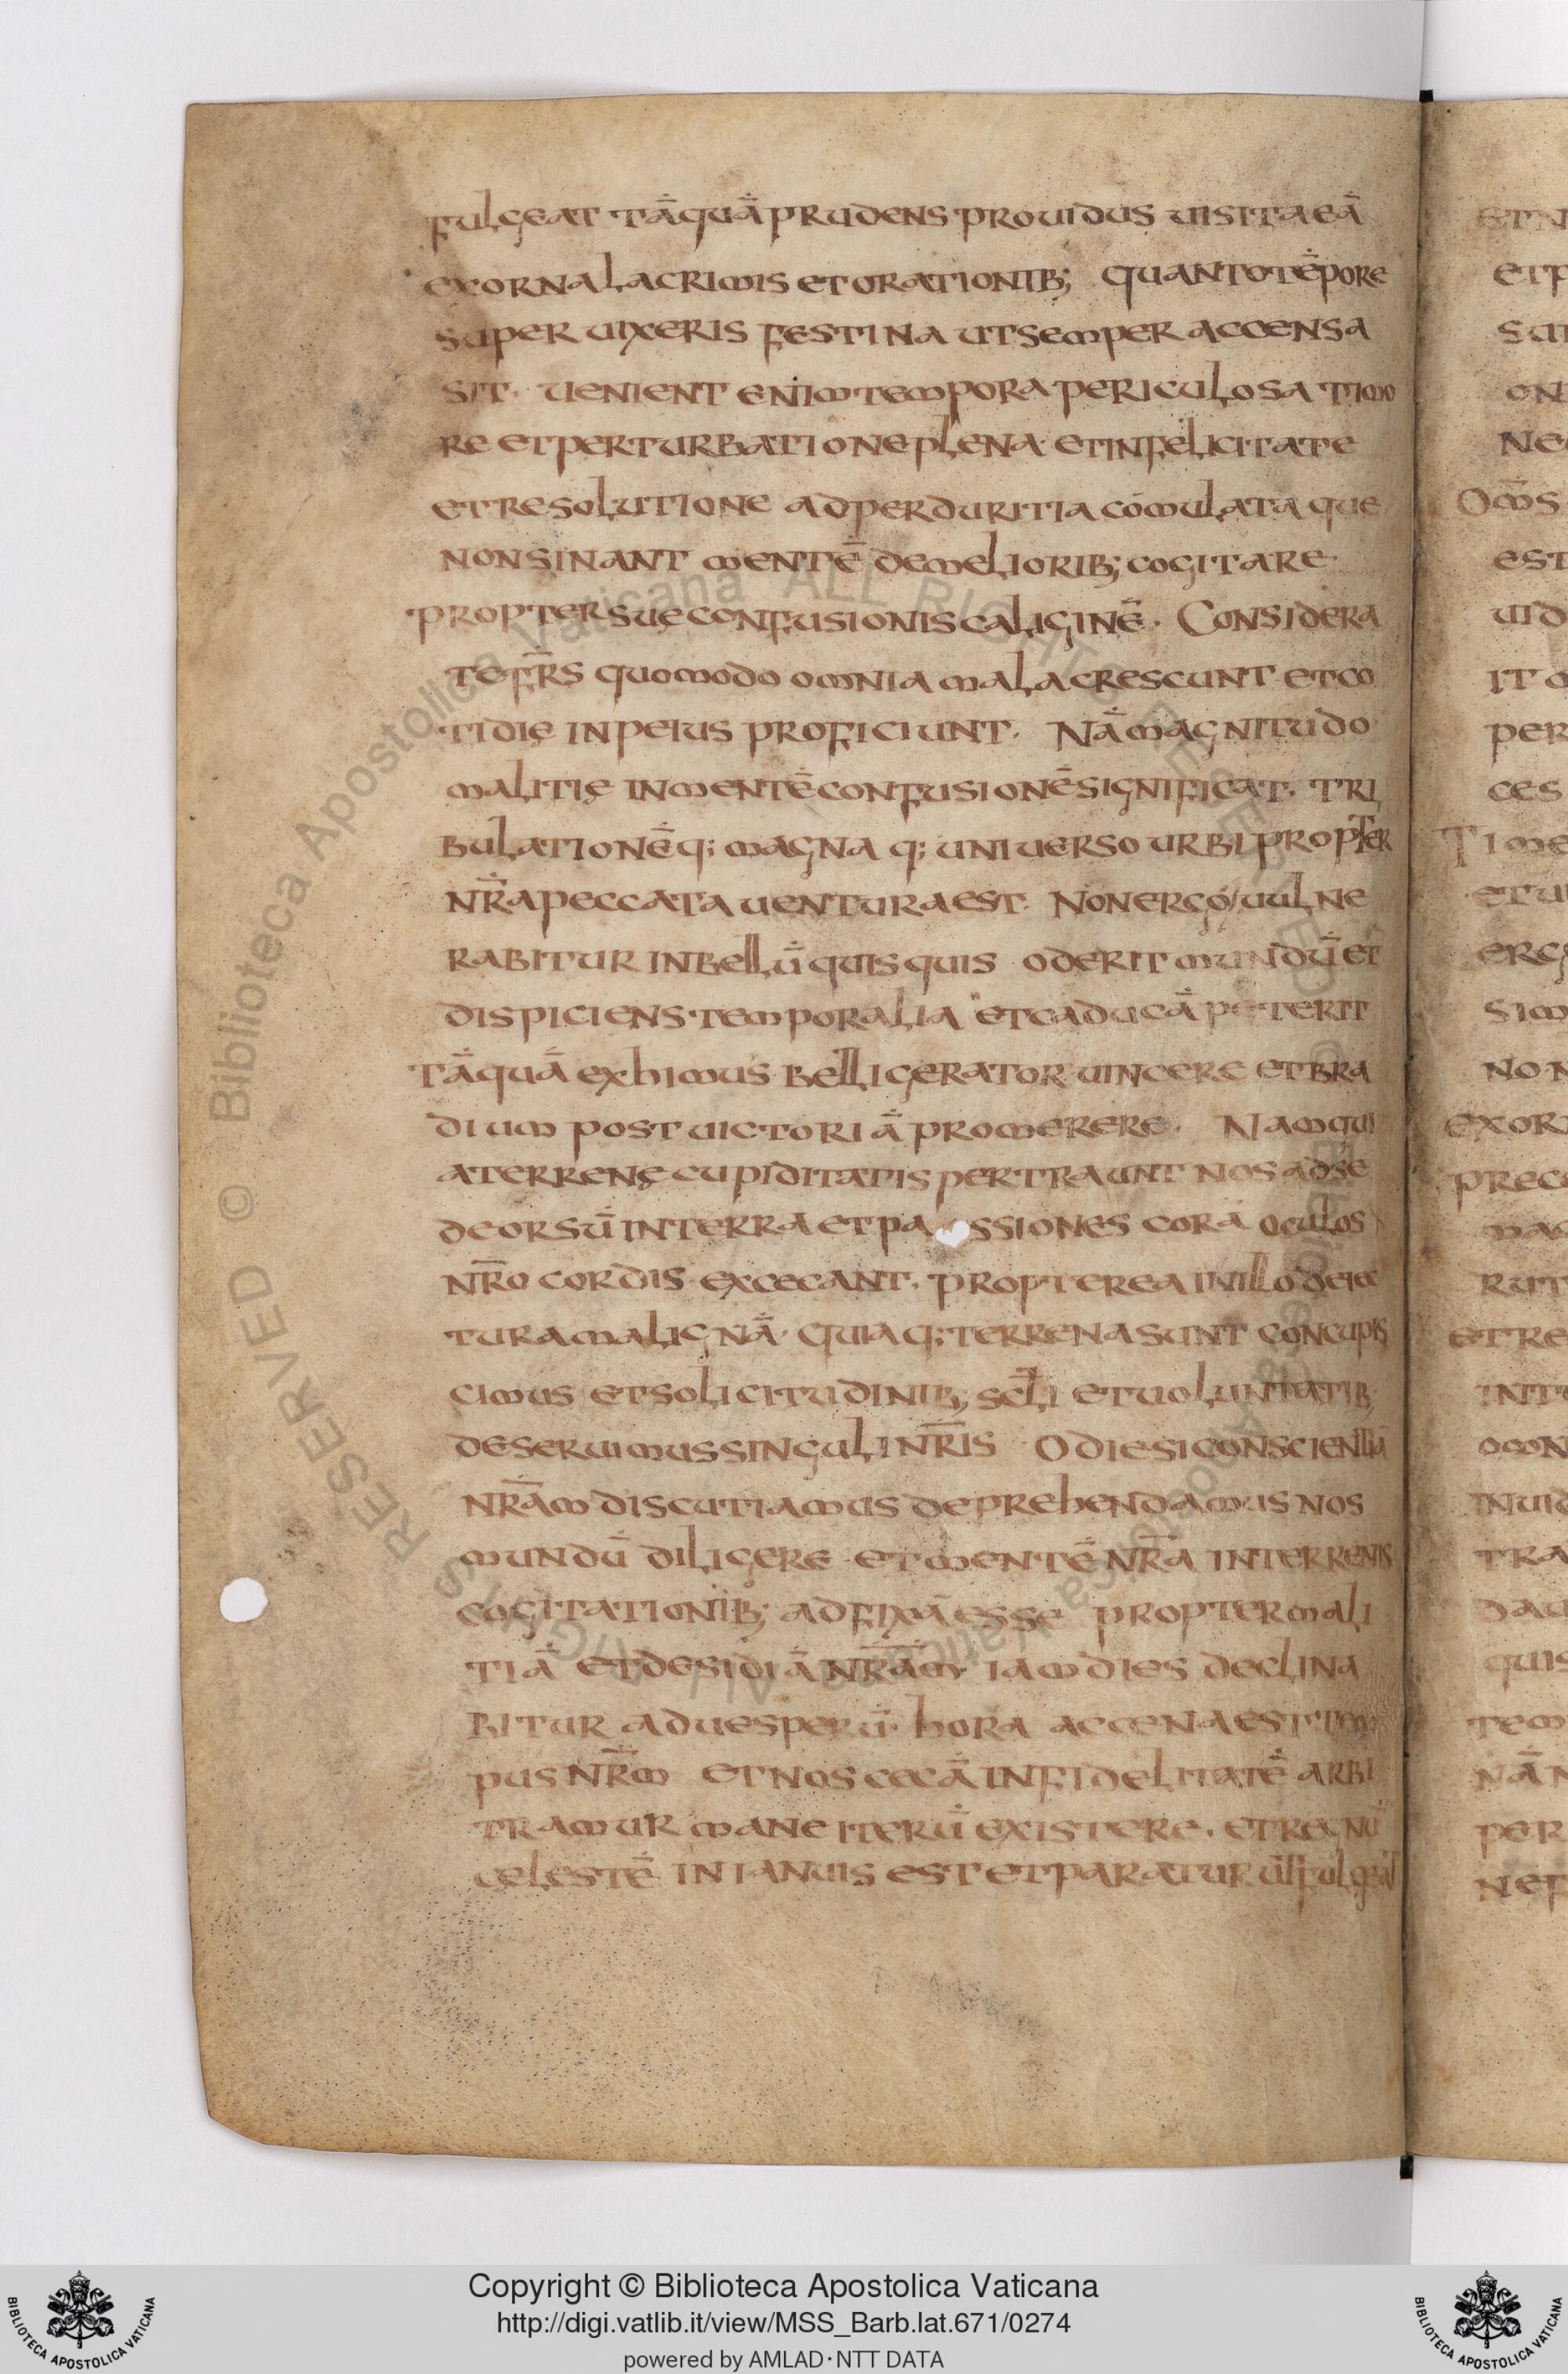 fulgeat tāquā prudens prouidus uisita eā
exorna lacrimis et orationib; quanto tēpore
super uixeris festina ut semper accensa
sit · uenient enim tempora periculosa timo
re et perturbatione plena · et infelicitate
et resolutione ad perduritia comulata que
non sinant mentē de meliorib; cogitare ·
propter sue confusionis caliginē · Considera
te fr̄s quomodo omnia mala crescunt et co
tidię in peius proficiunt · Nā magnitudo
malitię in mentē confusionē significat · tri
bulationē q; magna q; uniuerso urbi propter
nr̄a peccata uentura est · Non ergo uulne
rabitur in bellū quisquis oderit mundū et
dispiciens temporalia et caducā poterit
tāquā eximus belligerator uincere et bra
dium post uictoriā promerere · Nam qui
a terrenę cupiditatis pertraunt nos ad se
deorsū in terra et passiones cora oculos
nr̄o cordis excecant · propterea in illo deiec
tura malignā · quia q; terrena sunt concupis
cimus et solicitudinib; scl̄i et uoluntatib;
deseruimus singuli nr̄is O die si conscientiā
nr̄ām discutiamus deprehendamus nos
mundū diligere et mentē nr̄a in terrenis
cogitationib; adfixā esse propter mali
tiā et desidiā nr̄ām · iam dies declina
bitur ad uesperū · hora accena est tem
pus nr̄m et nos cecā infidelitatē arbi
tramur mane iterū existere · et regnū
celestē in ianuis est et paratur ut fulgeat
Oms
est
uid
per
ces
no n
exor
prece
et re
tra
quis
tem
per
Copyright © Biblioteca Apostolica Vaticana
http://digi.vatlib.it/view/MSS_Barb.lat.671/0274
powered by AMLAD·NTT DATA
BIBLIOTECA APOSTOLICA VATICANA
BIBLIOTECA APOSTOLICA VATICANA
© Biblioteca Apostolica Vaticana ALL RIGHTS RESERVED © Biblioteca Apostolica Vaticana ALL RIGHTS RESERVED